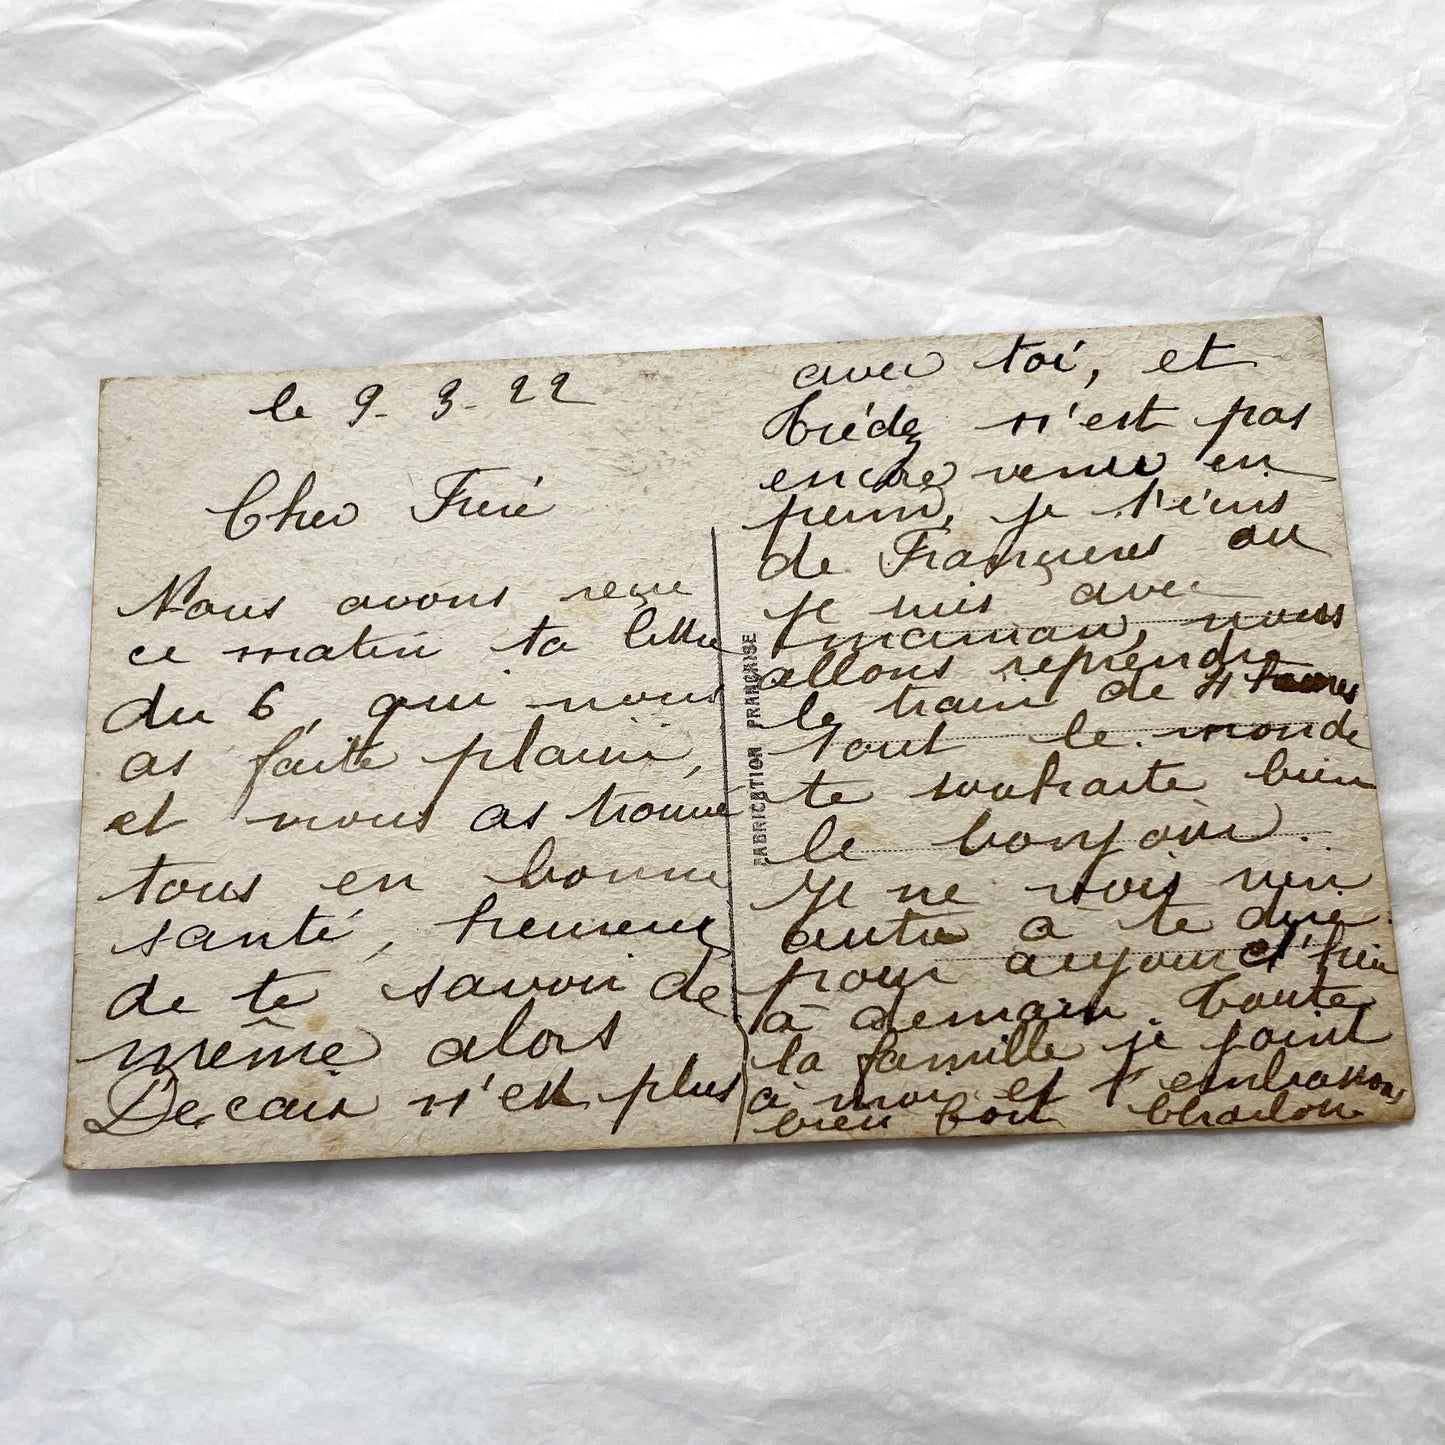 le 9-3-22
Cher Freré
Nous avons reçue
ce matin ta lettre
du 6, qui nous
as faite plaisir,
et nous as trouvé
tous en bonne
santé, heureux
de te savoir de
même alors
Decaix n'est plus
avec toi, et
n'est pas
encore venu en
perm, je t'écris
de Françieres ou
je suis avec
maman, nous
allons reprendre
le train de 4 heures
tout le monde
te souhaite bien
le bonjour.
Je ne vois rien
autre à te dire
pour aujourd'hui
à demain. Toute
la famille je joint
à moi et t'embrassons
bien fort
FABRICATION FRANÇAISE